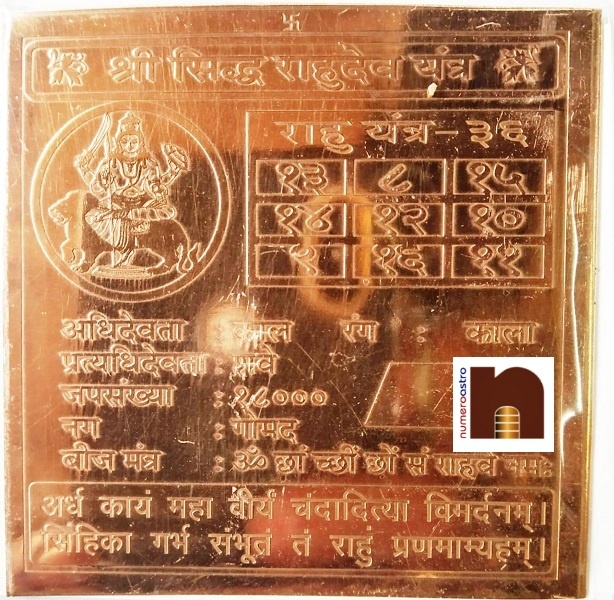 卐
श्री सिद्ध राहुदेव यंत्र
राहु यंत्र - ३६
१३ ८ १५
१४ १२ १०
९ १६ ११
अधिदेवता : काल रंग : काला
प्रत्यधिदेवता :
जपसंख्या : १८०००
नग : गोमद
बीज मंत्र : ॐ छ्रां च्छ्रीं छ्रों सं राहवे नमः
अर्ध कायं महा वीर्यं चंदादित्या विमर्दनम्।
सिंहिका गर्भ संभूतं तं राहुं प्रणमाम्यहम्।
numeroastro
n